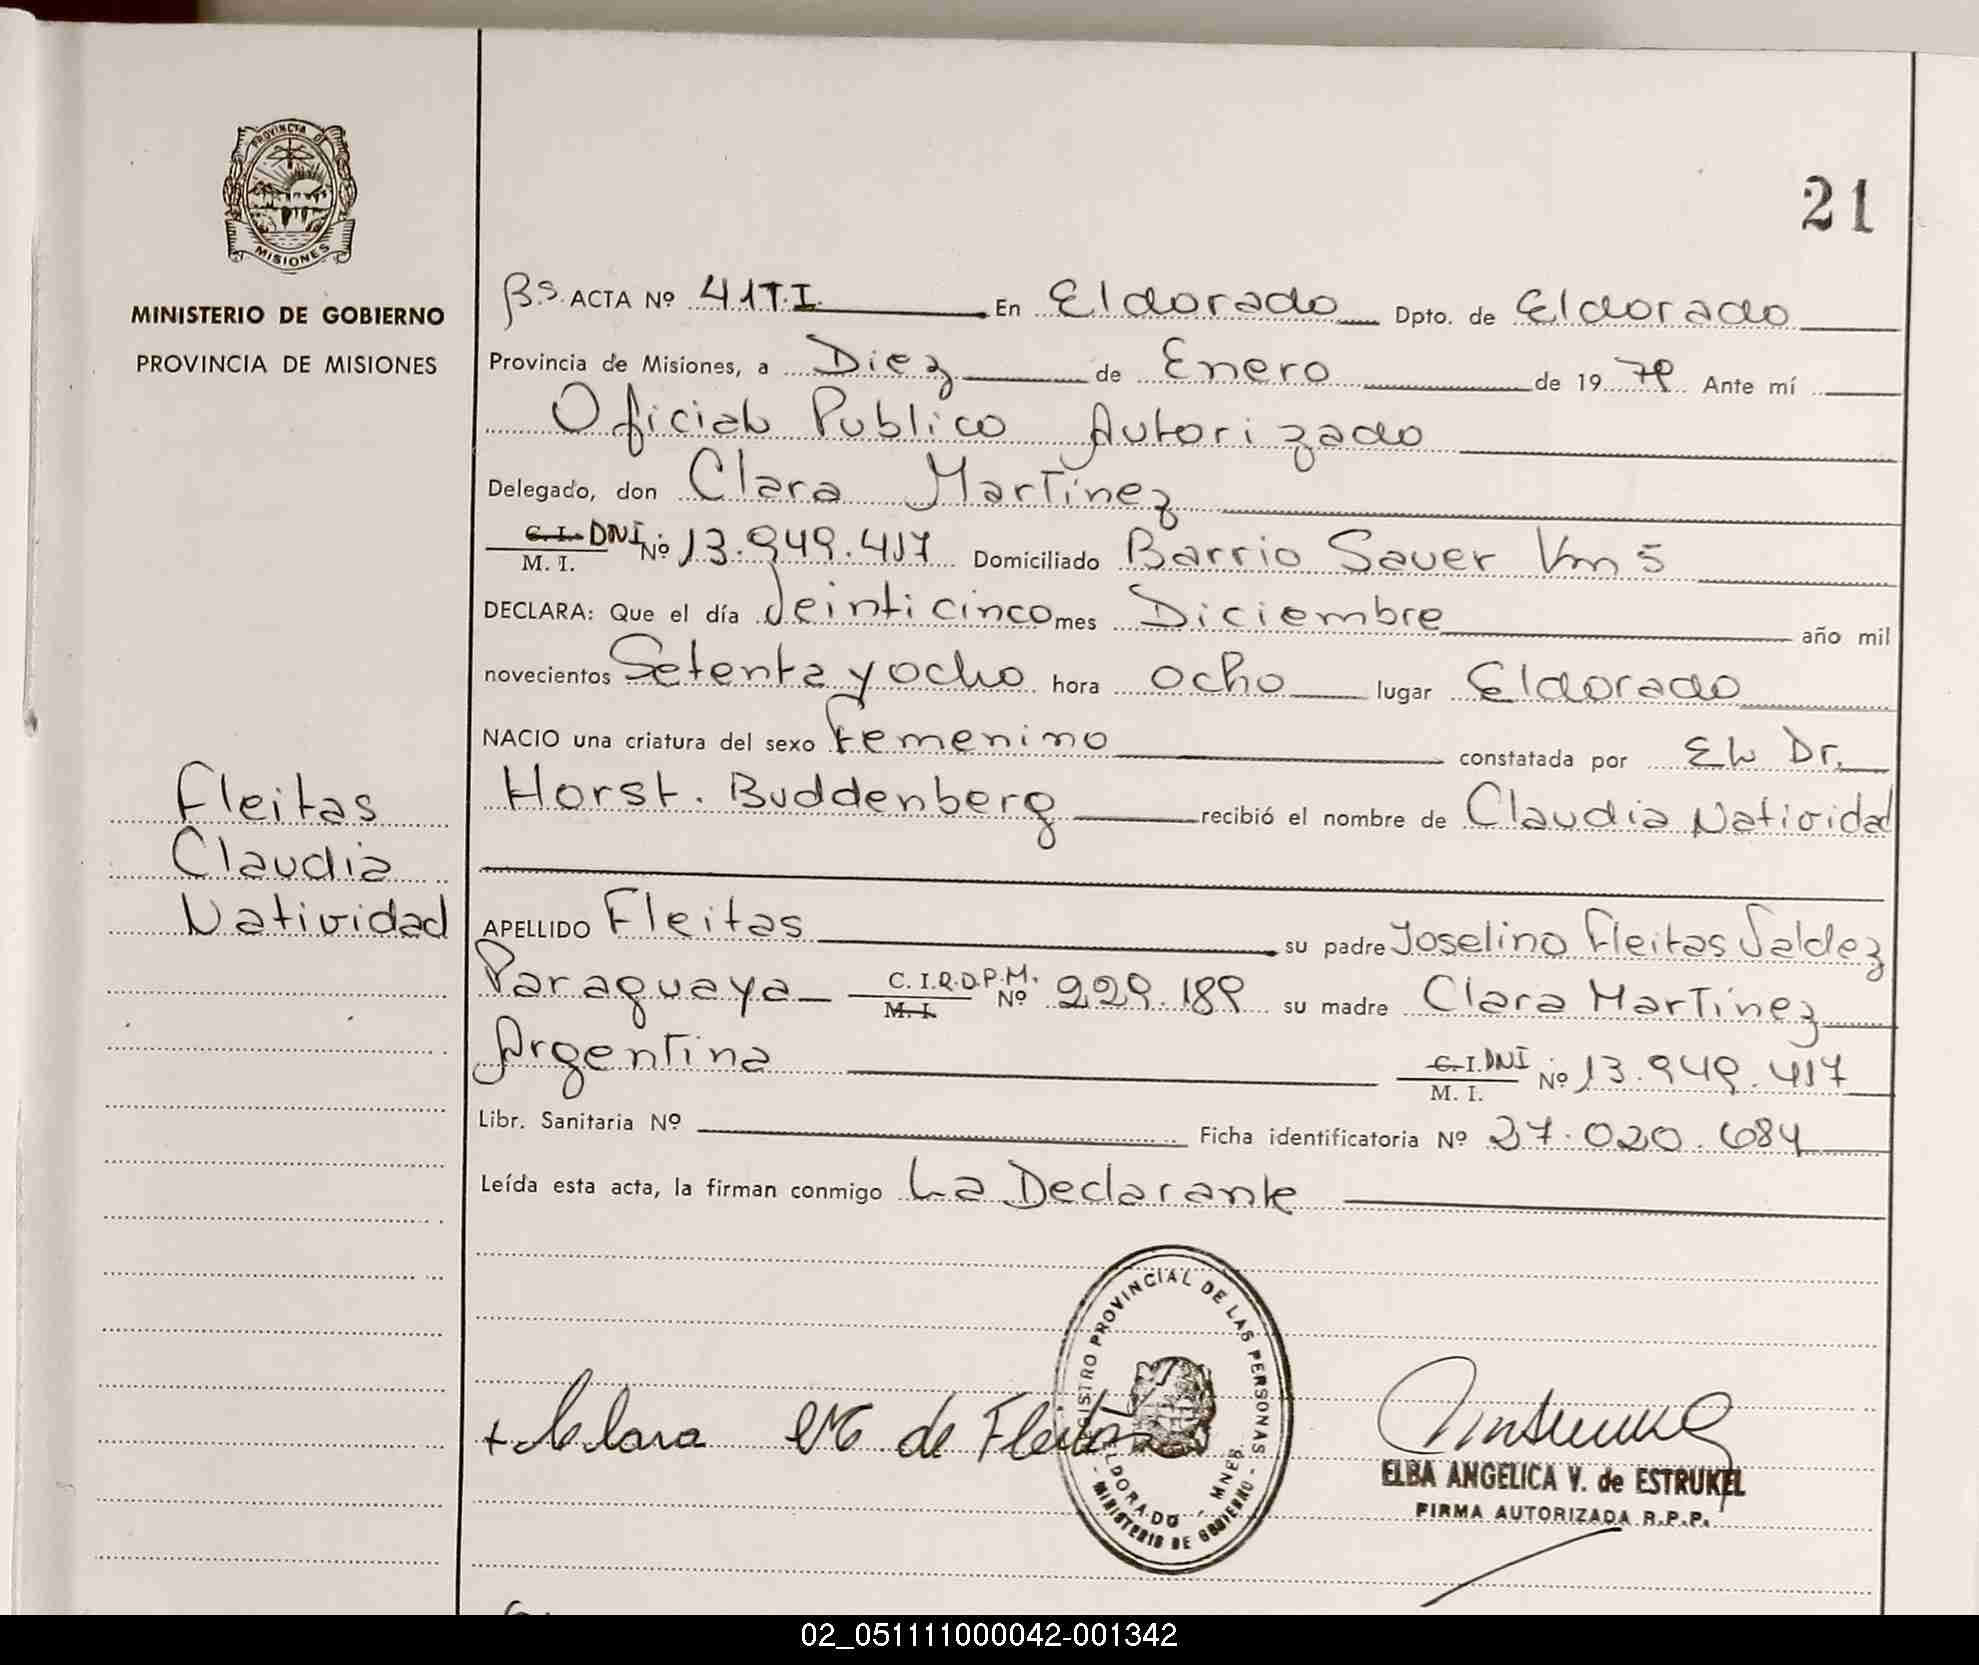 PROVINCIA DE
MISIONES
MINISTERIO DE GOBIERNO
PROVINCIA DE MISIONES
21
Bs. ACTA Nº 41T.I. En Eldorado Dpto. de Eldorado
Provincia de Misiones, a Diez de Enero de 19 79 Ante mí
Oficial Publico Autorizado
Delegado, don Clara Martínez
C. I. DNI.
M. I. Nº 13.949.417 Domiciliado Barrio Sauer Km 5
DECLARA: Que el día Veinticinco mes Diciembre año mil
novecientos Setenta y ocho hora ocho lugar Eldorado
NACIO una criatura del sexo Femenino constatada por El Dr.
Horst. Buddenberg recibió el nombre de Claudia Natividad
Fleitas
Claudia
Natividad
APELLIDO Fleitas su padre Joselino Fleitas Valdez
Paraguaya C. I. R.D.P.M. Nº 229.189 su madre Clara Martínez
M. I.
Argentina C. I. DNI Nº 13.949.417
M. I.
Libr. Sanitaria Nº Ficha identificatoria Nº 27.020.684
Leída esta acta, la firman conmigo La Declarante
REGISTRO PROVINCIAL DE LAS PERSONAS
ELDORADO - MNES.
- MINISTERIO DE GOBIERNO -
+ Clara M de Fleitas
ELBA ANGELICA V. de ESTRUKEL
FIRMA AUTORIZADA R.P.P.
02_051111000042-001342